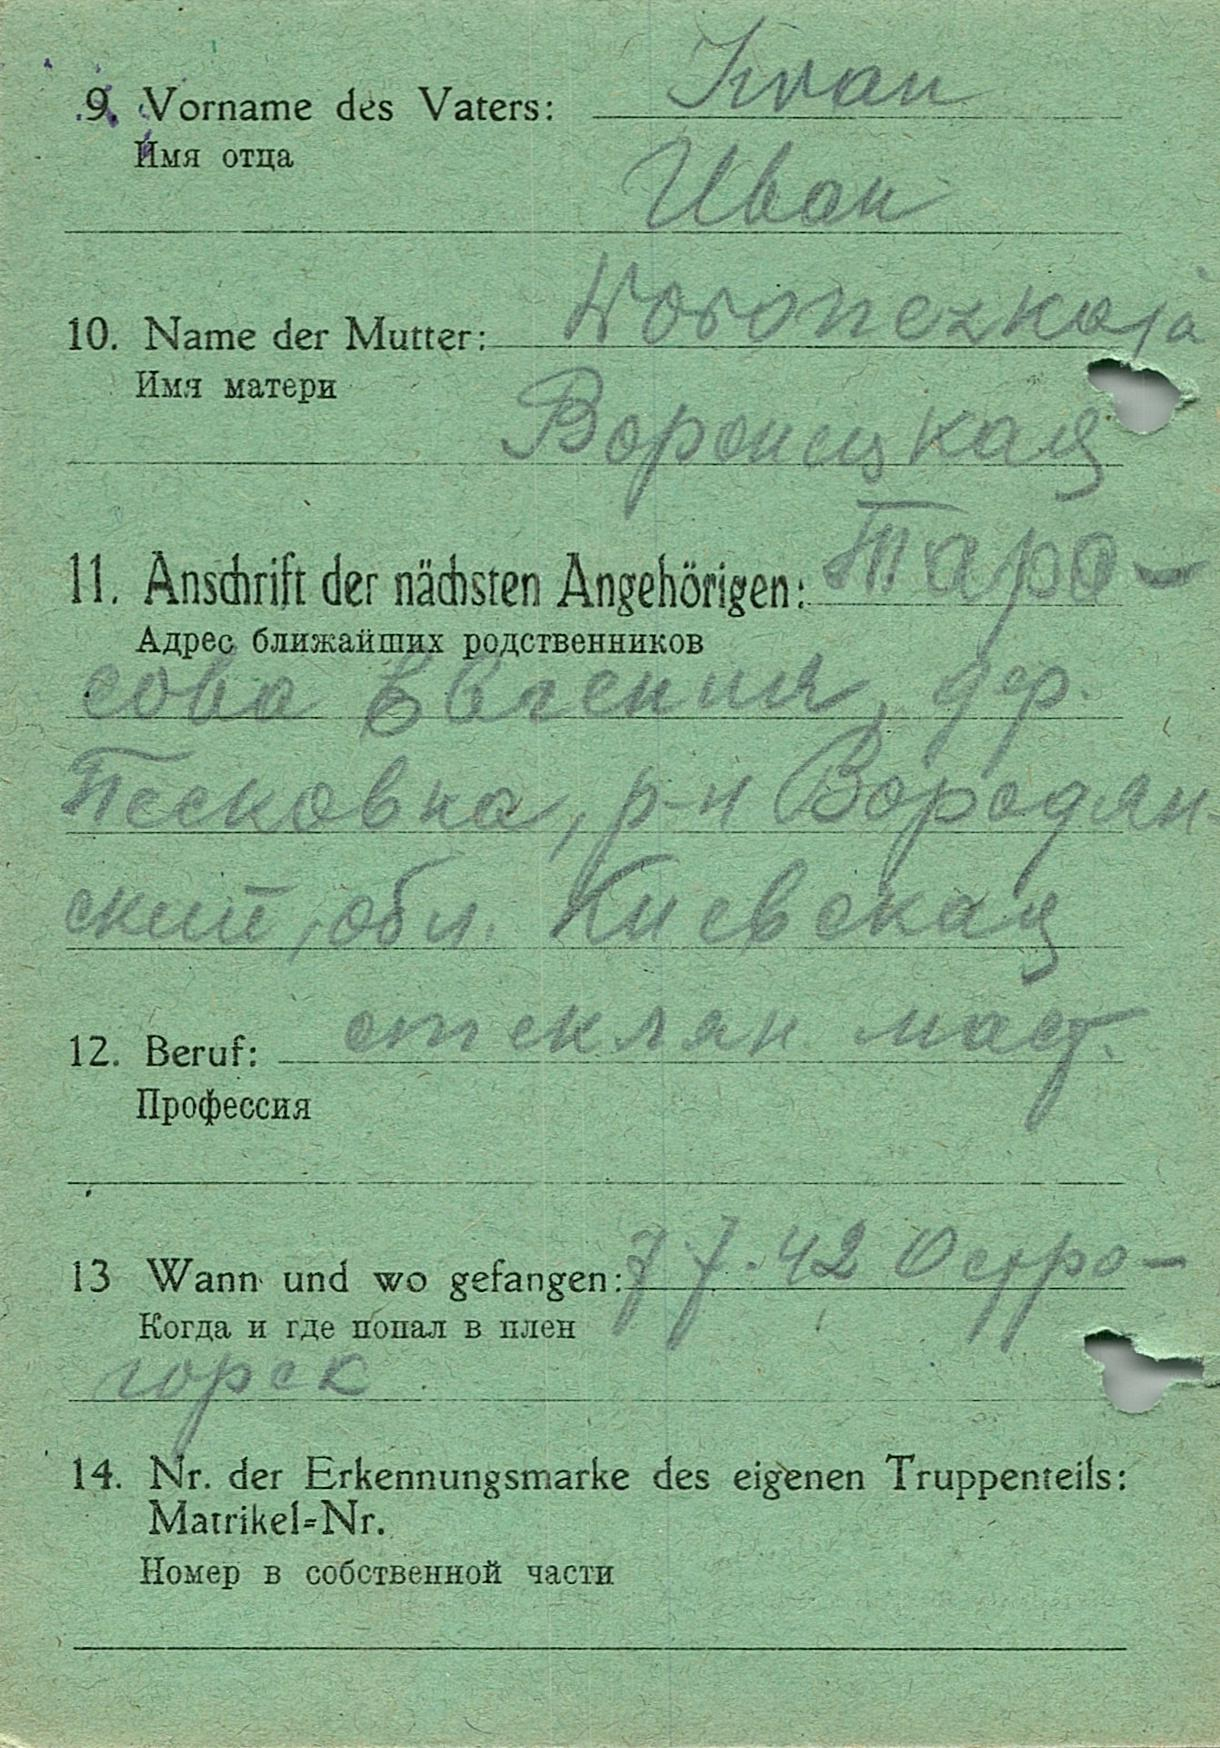 9. Vorname des Vaters: Iwan
Имя отца
Иван
10. Name der Mutter: Woronezkaja
Имя матери
Воронецкая
11. Anschrift der nächsten Angehörigen: Тара-
Адрес ближайших родственников
сова Евгения, дер.
Песковка, р-н Бородян-
ский, обл. Киевская
12. Beruf: стеклян маст.
Профессия
13 Wann und wo gefangen: 7.7.42 Остро-
Когда и где попал в плен
горск
14. Nr. der Erkennungsmarke des eigenen Truppenteils:
Matrikel=Nr.
Номер в собственной части